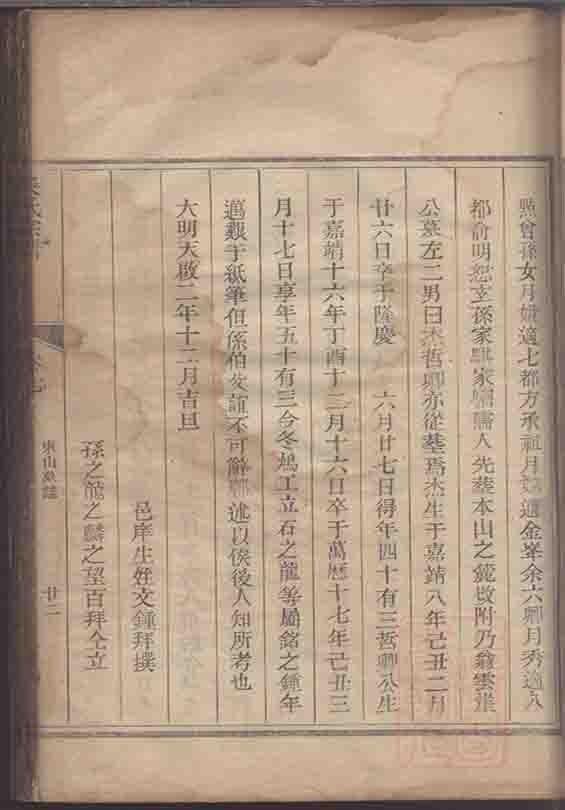 然曾孫女月娥適七都方承祖月適金峯余六卿月秀適八
都俞明恕玄孫家騏家驑孺人先葬本山之麓改附乃翁雲崖
公墓左二男曰杰哲卿亦從葬焉杰生于嘉靖八年己丑二月
廿六日卒于隆慶 六月廿七日得年四十有三哲卿公生
于嘉靖十六年丁酉十二月十六日卒于萬曆十七年己丑三
月十七日享年五十有三今冬鳩工立石之龍等屬銘之鍾年
邁艱于紙筆但係伯父誼不可辭聊述以俟後人知所考也
大明天啟二年十二月吉旦
邑庠生姪文鍾拜撰
孫之龍之麟之望百拜仝立
氏宗
卷七
東山墓誌
廿二